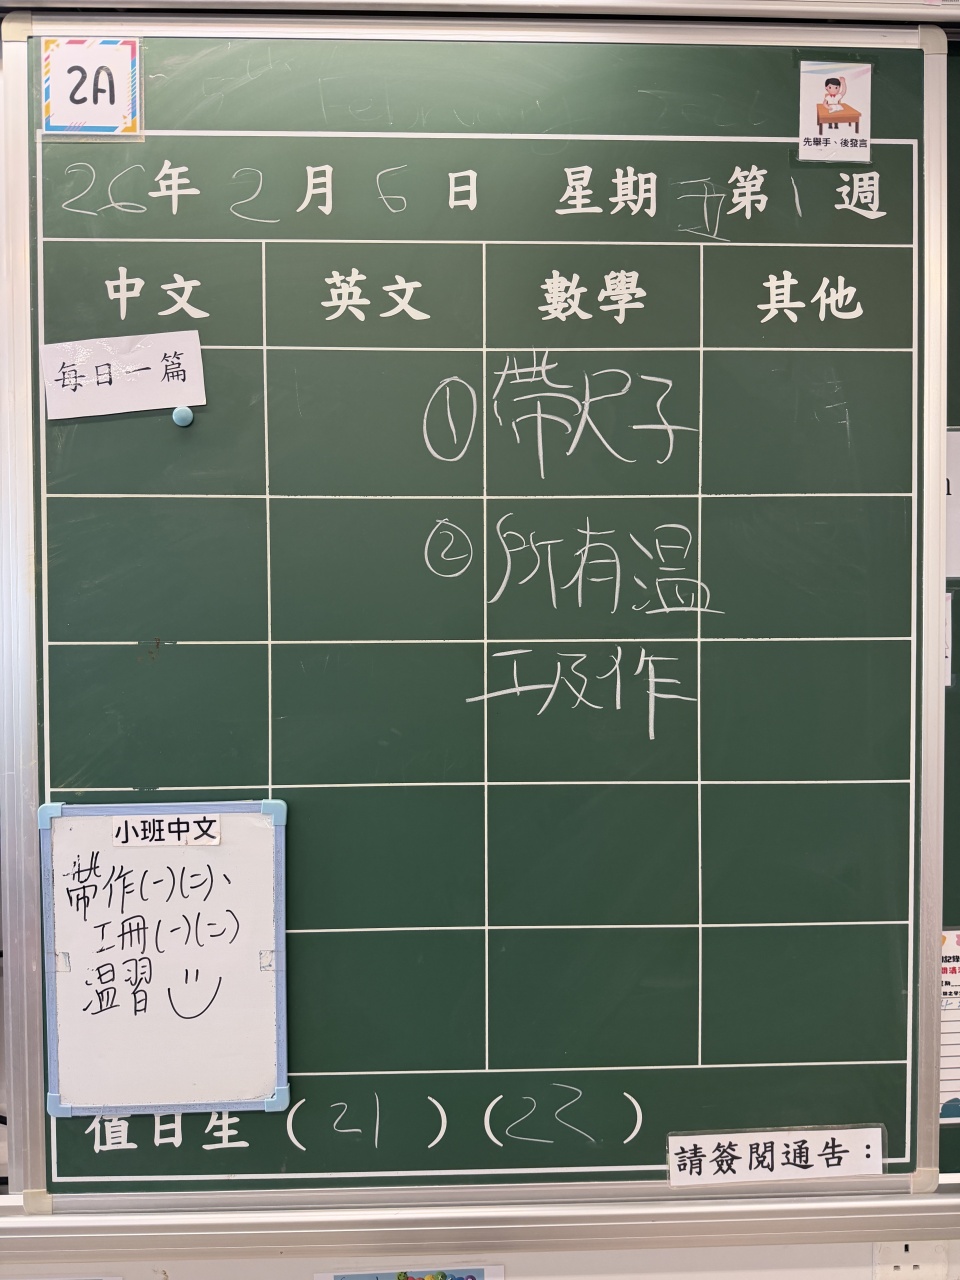 2A
先舉手、後發言
26年2月6日 星期五第1週
中文 英文 數學 其他
每日一篇
① 帶尺子
② 所有溫
工及作
小班中文
帶作(一)(二)、
工冊(一)(二)
溫習
值日生(21)(22)
請簽閱通告：